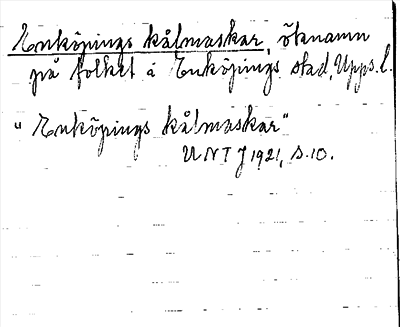 Enköpings kålmaskar, öknamn
på folket i Enköpings stad, Upps. l.
"Enköpings kålmaskar"
UNT J 1921, s. 10.